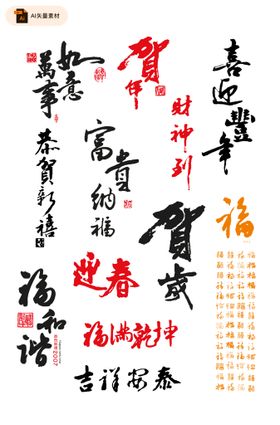 AI矢量素材
萬事如意
賀年
喜迎豐年
財神到
恭賀新禧
富貴納福
賀歲
福
迎春
福和谐
2007
福满乾坤
吉祥安泰